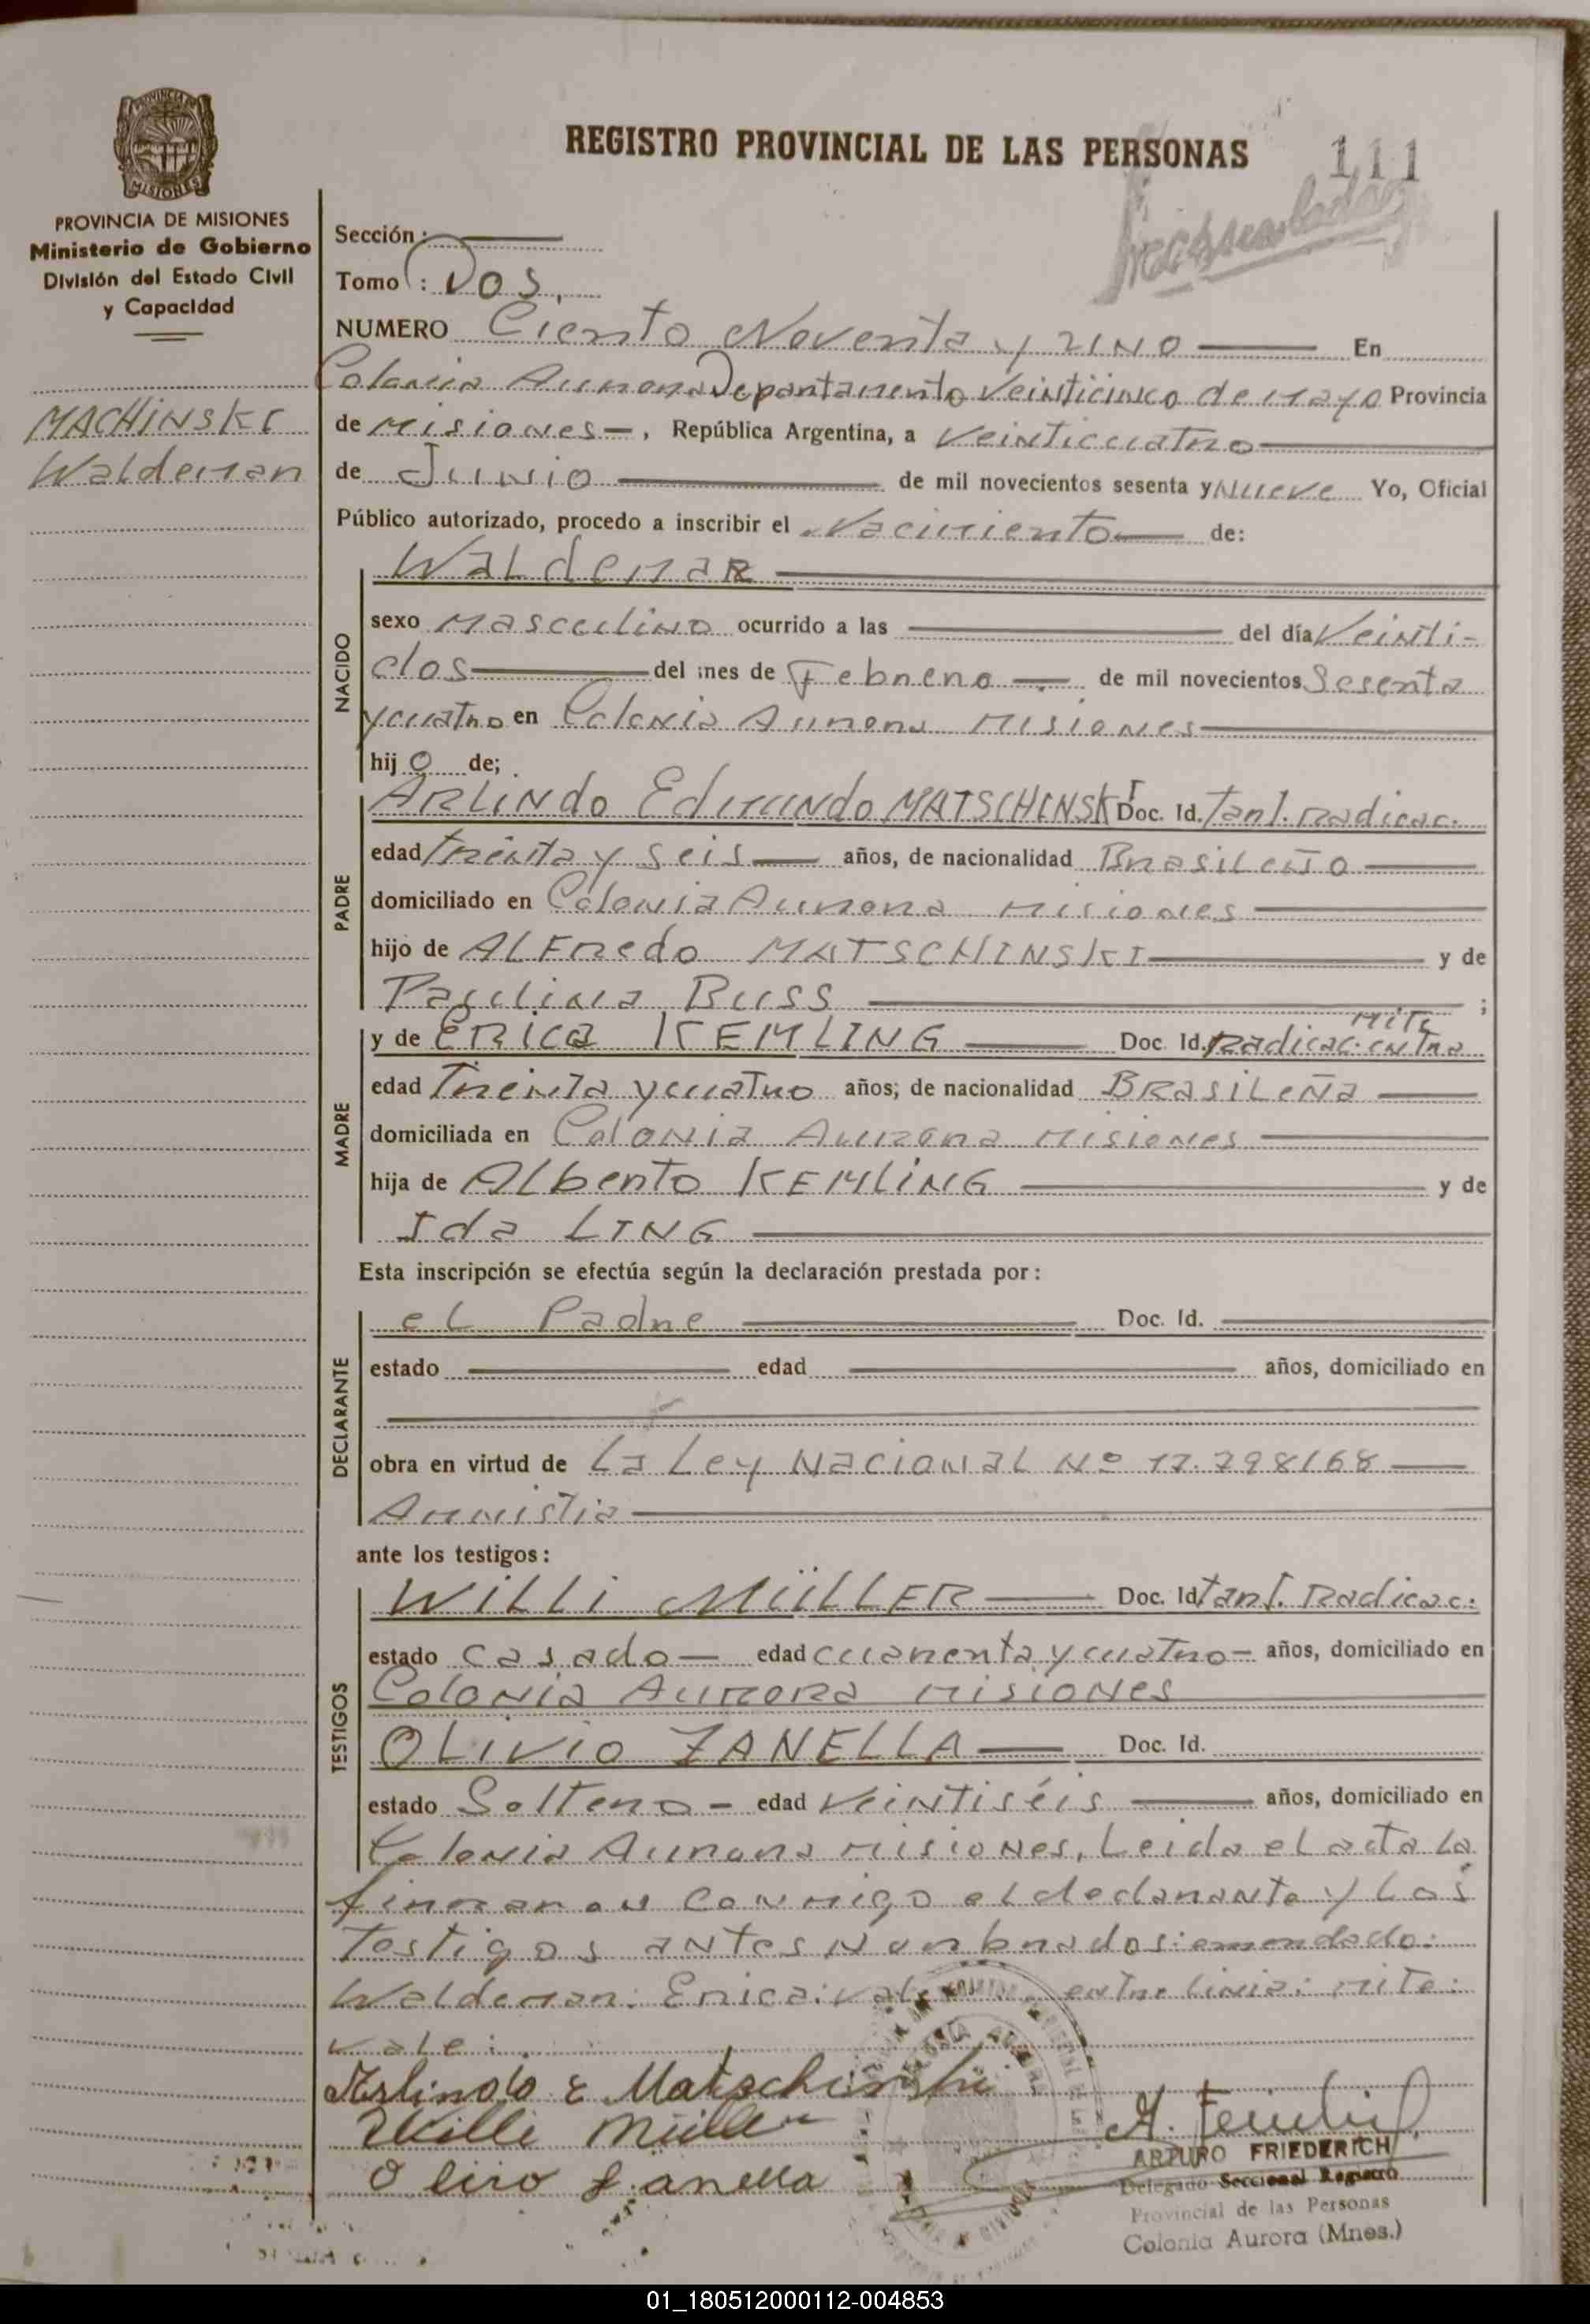 PROVINCIA DE MISIONES
Ministerio de Gobierno
División del Estado Civil
y Capacidad
MACHINSKI
Waldemar
REGISTRO PROVINCIAL DE LAS PERSONAS 111
Sección :
Tomo : DOS.
NUMERO Ciento Noventa y UNO En
Colonia Aurora Departamento Veinticinco de Mayo Provincia
de Misiones, República Argentina, a Veinticuatro
de Junio de mil novecientos sesenta y Nueve Yo, Oficial
Público autorizado, procedo a inscribir el Nacimiento de:
NACIDO
WaldemaR
sexo Masculino ocurrido a las del día Veinti-
dos del mes de Febrero de mil novecientos Sesenta
y cuatro en Colonia Aurora Misiones
hij o de;
PADRE
ARLINdo Edmundo MATSCHINSKI Doc. Id. Tarj. Radicac.
edad Treinta y Seis años, de nacionalidad Brasileño
domiciliado en Colonia Aurora Misiones
hijo de ALFredo MATSCHINSKI y de
Paulina Buss ;
MADRE
y de ERica KEMLING Doc. Id. Radicac. en tra mite
edad Treinta y cuatro años; de nacionalidad BRasileña
domiciliada en Colonia Aurora Misiones
hija de Alberto KEMLING y de
Ida LING
Esta inscripción se efectúa según la declaración prestada por:
DECLARANTE
el Padre Doc. Id.
estado edad años, domiciliado en
obra en virtud de La Ley Nacional Nº 17.798/68
Amnistia
ante los testigos:
TESTIGOS
WILLI MÜLLER Doc. Id. Tarj. Radicac.
estado Casado - edad cuarenta y cuatro - años, domiciliado en
Colonia Aurora Misiones
OLIVIO ZANELLA Doc. Id.
estado Soltero - edad Veintiséis años, domiciliado en
Colonia Aurora Misiones, Leida el acta la
firmaron conmigo el declarante y Los
Testigos antes Nonbrados: emendado:
Waldemar: Erica: vale entre linia: mite:
vale:
Arlindo E Matschinski
Willi Müller
Olivo Zanella
ARTURO FRIEDERICH
Delegado Seccional Registro
Provincial de las Personas
Colonia Aurora (Mnes.)
01_180512000112-004853